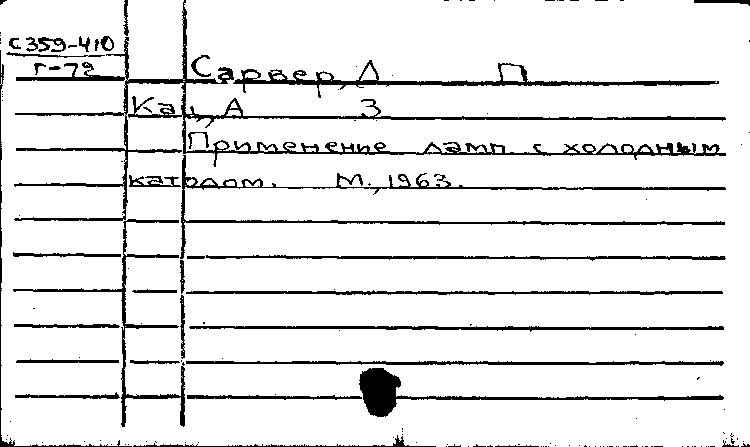 С359-410
Г-72
Сарвер, Л П
Кац, А З
Применение ламп с холодным
катодом. М., 1963.